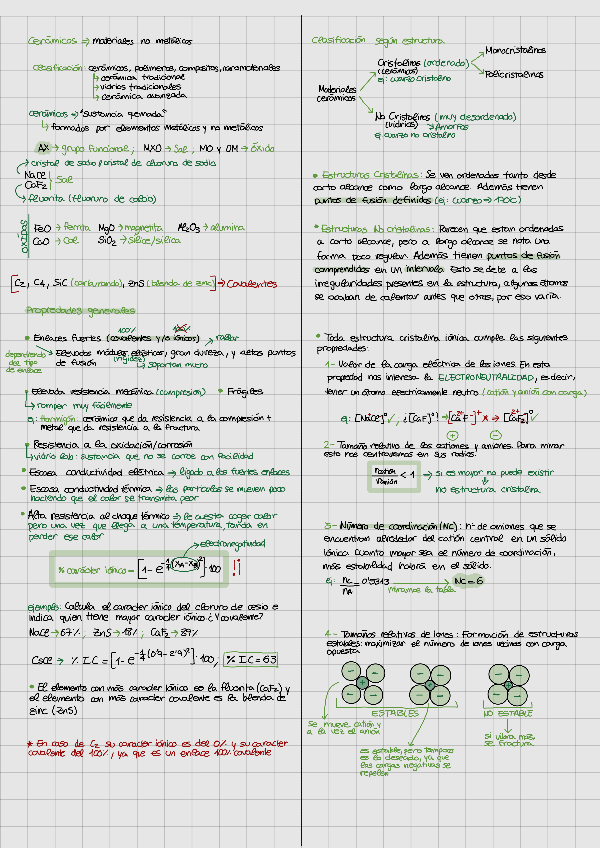 Cerámicos => materiales no metálicos
clasificación cerámicos, polímeros, composites, nanomateriales
↳ cerámica tradicional
↳ vidrios tradicionales
↳ cerámica avanzada
cerámicos → "sustancia quemada"
↳ formados por elementos metálicos y no metálicos
AX → grupo funcional; MXO → Sal, MO y OM → óxido
→ cristal de sodio/cristal de cloruro de sodio
NaCl
CaF₂ | Sal
→ fluorita (fluoruro de calcio)
ÓXIDOS
FeO → ferrita MgO → magnetita Al₂O₃ → alumina
CaO → cal SiO₂ → sílice/sílica
[C₂, C₄, SiC (carburando), ZnS (blenda de zinc)] → Covalentes
Propiedades generales
100%
• Enlaces fuertes (covalentes y/o iónicos) → rallar
dependiendo del tipo de enlace
• Elevados módulos elásticos, gran dureza, y altos puntos
de fusión (rigidez) ↳ soportan mucho
• Elevada resistencia mecánica (compresión) • Frágiles
↳ romper muy fácilmente
ej: hormigón cerámica que da resistencia a la compresión +
metal que da resistencia a la fractura
• Resistencia a la oxidación/corrosión
↳ vidrio lab: sustancia que no se corroe con facilidad
• Escasa conductividad eléctrica → ligado a los fuertes enlaces
• Escasa conductividad térmica → las partículas se mueven poco
haciendo que el calor se transmita peor
• Alta resistencia al choque térmico → le cuesta coger calor
pero una vez que llega a una temperatura, tarda en
perder ese calor
→ electronegatividad
% carácter iónico = [1 - e^(-1/4 (Xa - Xb)²)]·100 !!
Ejemplo: Calcula el carácter iónico del cloruro de cesio e
indica quien tiene mayor carácter iónico ¿Y covalente?
NaCl → 67%, ZnS → 18%, CaF₂ → 89%
CsCl → % I.C = [1 - e^(-1/4 (0'9 - 2'9)²)]·100, % IC = 63
• El elemento con más carácter iónico es la fluorita (CaF₂) y
el elemento con más carácter covalente es la blenda de
zinc (ZnS)
* En caso de C₂ su carácter iónico es del 0% y su carácter
covalente del 100%, ya que es un enlace 100% covalente
Clasificación según estructura
Materiales
cerámicos
Cristalinos (ordenado)
(cerámicos)
ej: cuarzo cristalino
Monocristalinos
Policristalinos
No Cristalinos (muy desordenado)
(vidrios) → Amorfos
ej: cuarzo no cristalino
• Estructuras Cristalinas: Se ven ordenadas tanto desde
corto alcance como largo alcance. Además tienen
puntos de fusión definidos
* Estructuras No cristalinas: Parecen que están ordenadas
a corto alcance, pero a largo alcance se nota una
forma poco regular. Además tienen puntos de fusión
comprendidos en un intervalo. Esto se debe a las
irregularidades presentes en la estructura, algunos átomos
se acaban de calentar antes que otros, por eso varía.
• Toda estructura cristalina iónica cumple las siguientes
propiedades:
1- Valor de la carga eléctrica de los iones. En esta
propiedad nos interesa la ELECTRONEUTRALIDAD, es decir,
tener un átomo eléctricamente neutro (catión y anión con carga)
ej: [Na⁺Cl⁻]⁰ ✓, ¿[CaF]⁰? → [Ca²⁺F⁻]⁺ x → [Ca²⁺F₂]⁰ ✓
+ -
2- Tamaño relativo de los cationes y aniones. Para mirar
esto nos centraremos en sus radios.
rcatión/ranión < 1 → si es mayor no puede existir
no estructura cristalina
3- Número de coordinación (NC): nº de aniones que se
encuentran alrededor del catión central en un sólido
iónico. Cuanto mayor sea el número de coordinación,
más estabilidad habrá en el sólido.
ej: rc/rA = 0'5313 → NC = 6
miramos la tabla
4- Tamaños relativos de iones: Formación de estructuras
estables: maximizar el número de iones vecinos con carga
opuesta
ESTABLES NO ESTABLE
se mueve catión y
a la vez el anión
es estable, pero tampoco
es lo deseado, ya que
las cargas negativas se
repelen
si vibra más,
se fractura